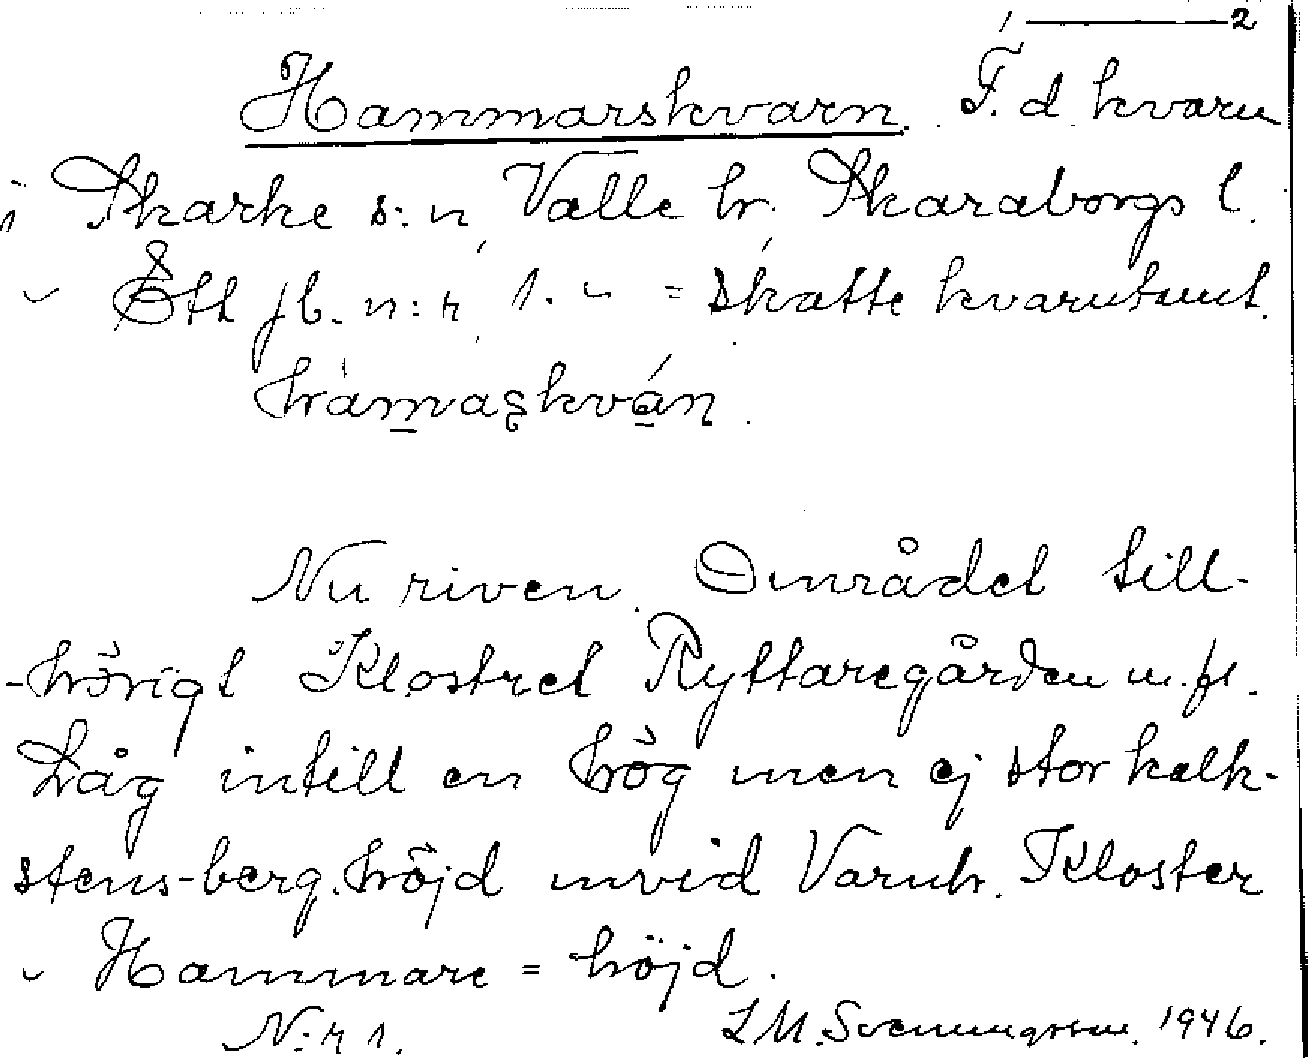 1 — 2
Hammarskvarn. F. d kvarn
i Skarke s:n Valle hr. Skaraborgs l.
Ett jb. n:r 1. = skatte kvarntomt.
hàmaskván.
Nu riven. Området till-
-hörigt Klostret Ryttaregården m.fl.
Låg intill en hög men ej stor kalk-
stens-berg.höjd invid Varnh. Kloster
Hammare = höjd.
N:r 1. L M. Svenungsson. 1946.